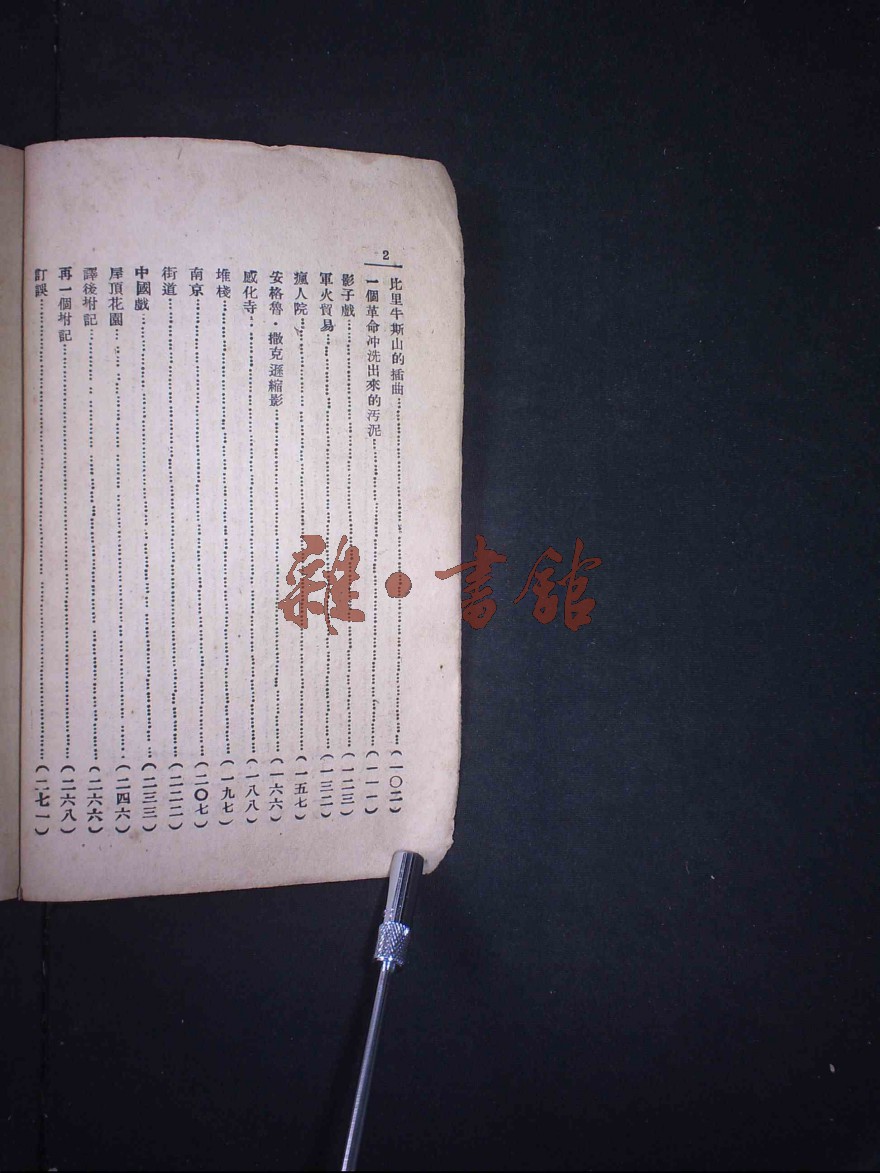 2
比里牛斯山的插曲……(一〇二)
一個革命冲洗出來的汚泥……(一一一)
影子戲……(一二三)
軍火貿易……(一三二)
瘋人院……(一五七)
安格魯·撒克遜縮影……(一六六)
感化寺……(一八八)
堆棧……(一九七)
南京……(二〇七)
街道……(二二二)
中國戲……(二三三)
屋頂花園……(二四六)
譯後坿記……(二六六)
再一個坿記……(二六八)
訂誤……(二七一)
雜·書館